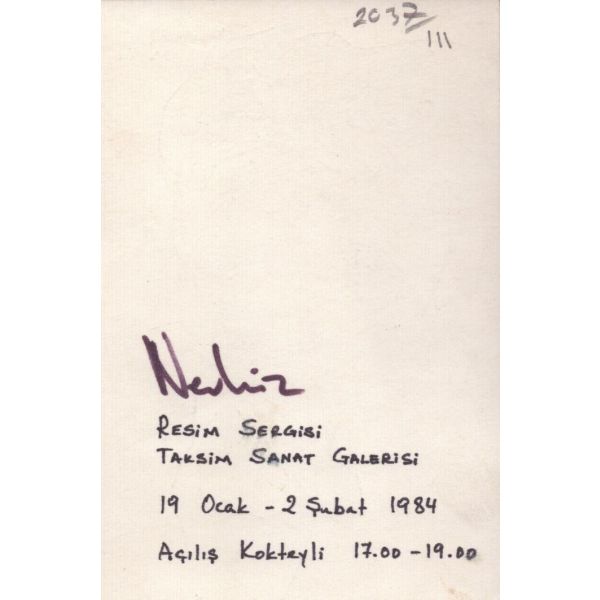 2037/III
Nevhiz
Resim Sergisi
Taksim Sanat Galerisi
19 Ocak - 2 Şubat 1984
Açılış Kokteyli 17.00 - 19.00